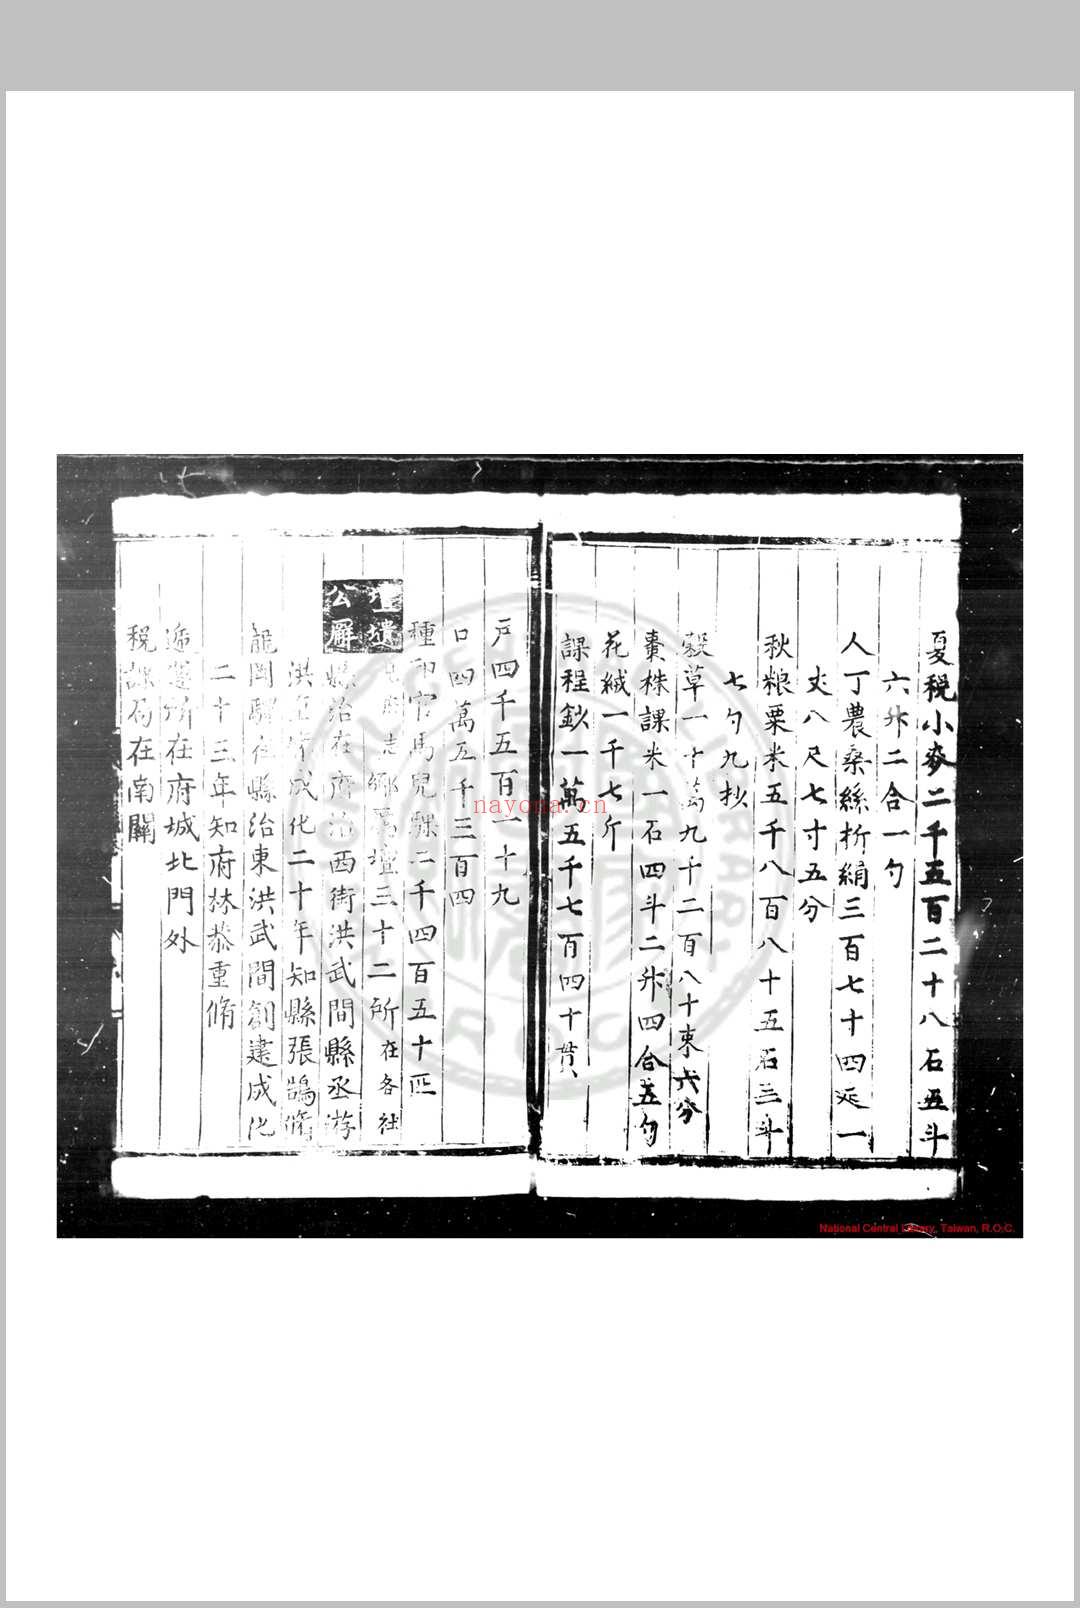 夏稅小麥二千五百二十八石五斗
六升二合一勺
人丁農桑絲折絹三百七十四疋一
丈八尺七寸五分
秋粮粟米五千八百八十五石三斗
七勺九抄
穀草一十萬九千二百八十束六分
棗株課米一石四斗二升四合五勺
花絨一千七斤
課程鈔一萬五千七百四十貫
戶四千五百二十九
口四萬五千三百四
種馬官馬兒騍二千四百五十匹
壇壝
鄉厲壇三十二所在各社
公廨
縣治在府治西街洪武間縣丞游
洪 成化二十年知縣張鵠脩
龍岡驛在縣治東洪武間創建成化
二十三年知府林恭重脩
遞運所在府城北門外
稅課局在南關
nayona.cn
National Central Library, Taiwan, R.O.C.